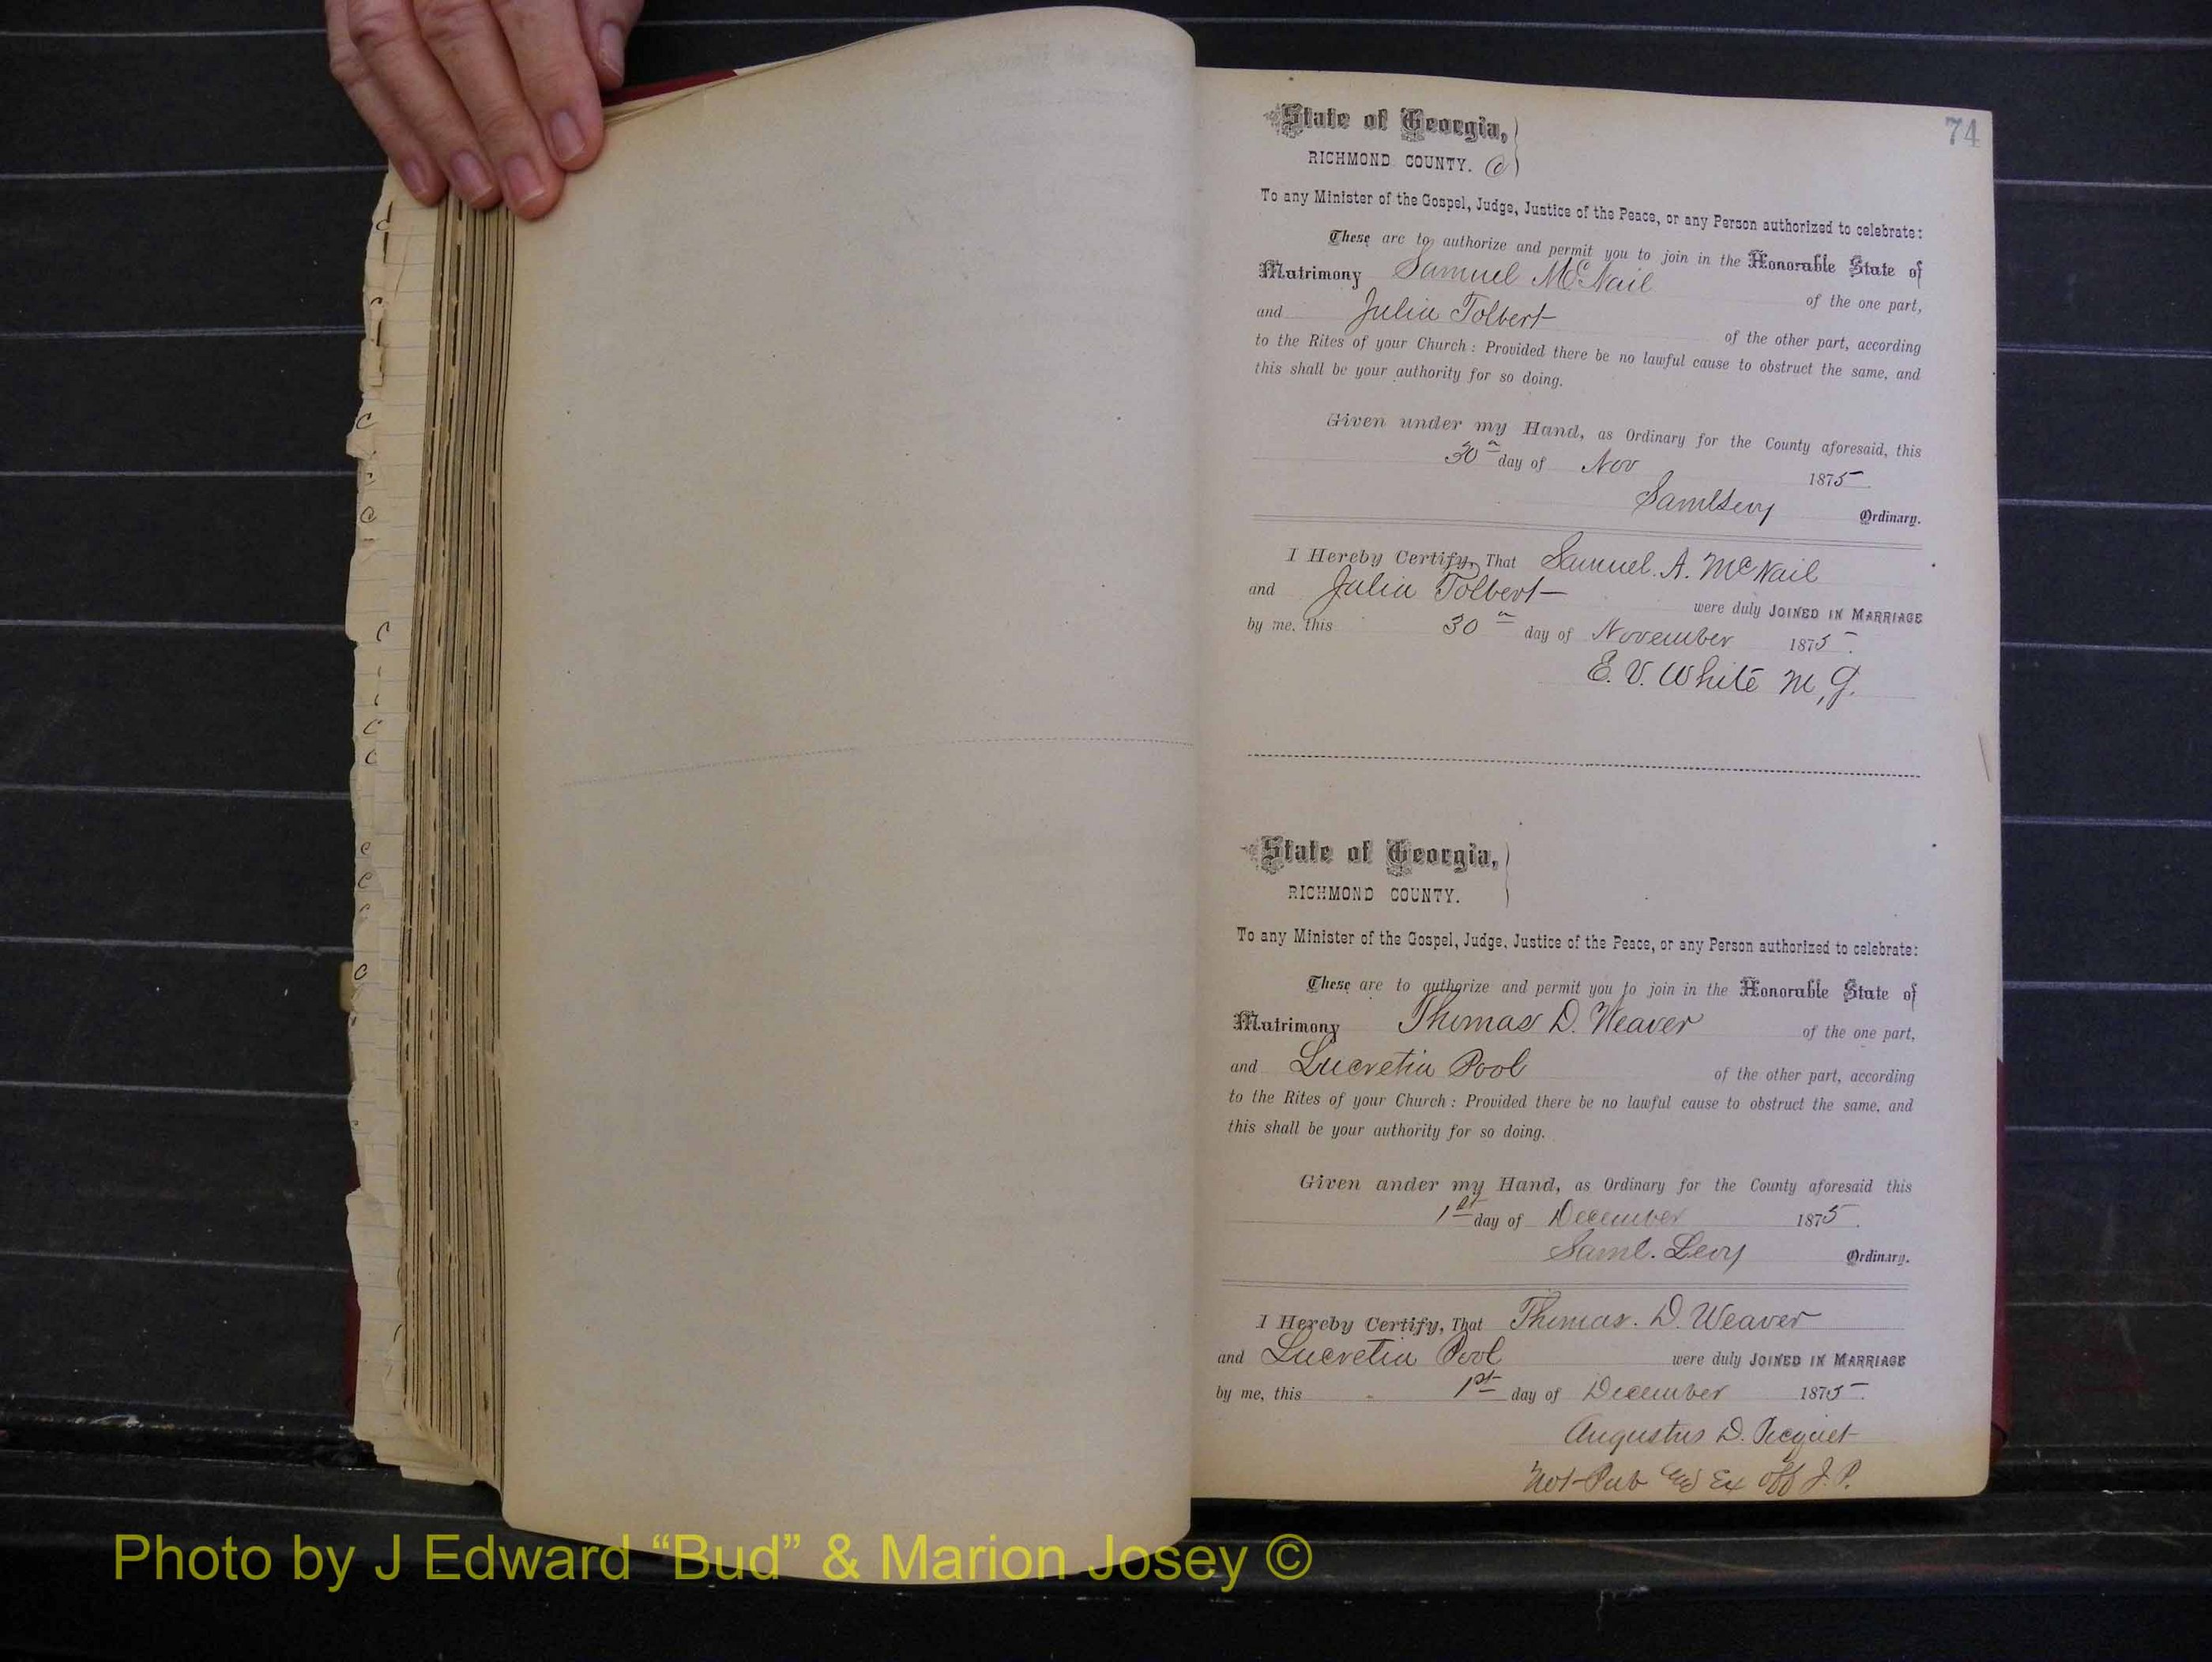 74
State of Georgia,
RICHMOND COUNTY. C
To any Minister of the Gospel, Judge, Justice of the Peace, or any Person authorized to celebrate:
These are to authorize and permit you to join in the Honorable State of
Matrimony Samuel McNail of the one part,
and Julia Tolbert of the other part, according
to the Rites of your Church: Provided there be no lawful cause to obstruct the same, and
this shall be your authority for so doing.
Given under my Hand, as Ordinary for the County aforesaid, this
30 day of Nov 1875
Saml Levy Ordinary.
I Hereby Certify, That Samuel. A. McNail
and Julia Tolbert were duly JOINED IN MARRIAGE
by me, this 30 day of November 1875.
E. V. White M, G.
State of Georgia,
RICHMOND COUNTY.
To any Minister of the Gospel, Judge, Justice of the Peace, or any Person authorized to celebrate:
These are to authorize and permit you to join in the Honorable State of
Matrimony Thomas D. Weaver of the one part,
and Lucretia Pool of the other part, according
to the Rites of your Church: Provided there be no lawful cause to obstruct the same, and
this shall be your authority for so doing.
Given under my Hand, as Ordinary for the County aforesaid this
1st day of December 1875.
Saml. Levy Ordinary.
I Hereby Certify, That Thomas. D. Weaver
and Lucretia Pool were duly JOINED IN MARRIAGE
by me, this 1st day of December 1875.
Augustus D. Picquet
Not Pub Ex Off J. P.
Photo by J Edward “Bud” & Marion Josey ©